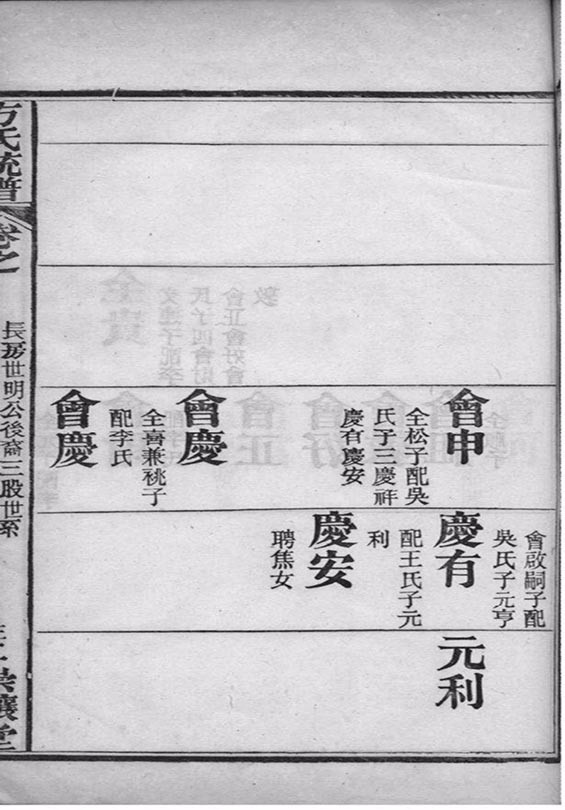 會申
全松子配吳
氏子三慶祥
慶有慶安
會慶
全喜兼祧子
配李氏
會慶
會啟嗣子配
吳氏子元亨
慶有
配王氏子元
利
慶安
聘焦女
元利
方氏統譜
卷之
長房世明公後裔三股世系